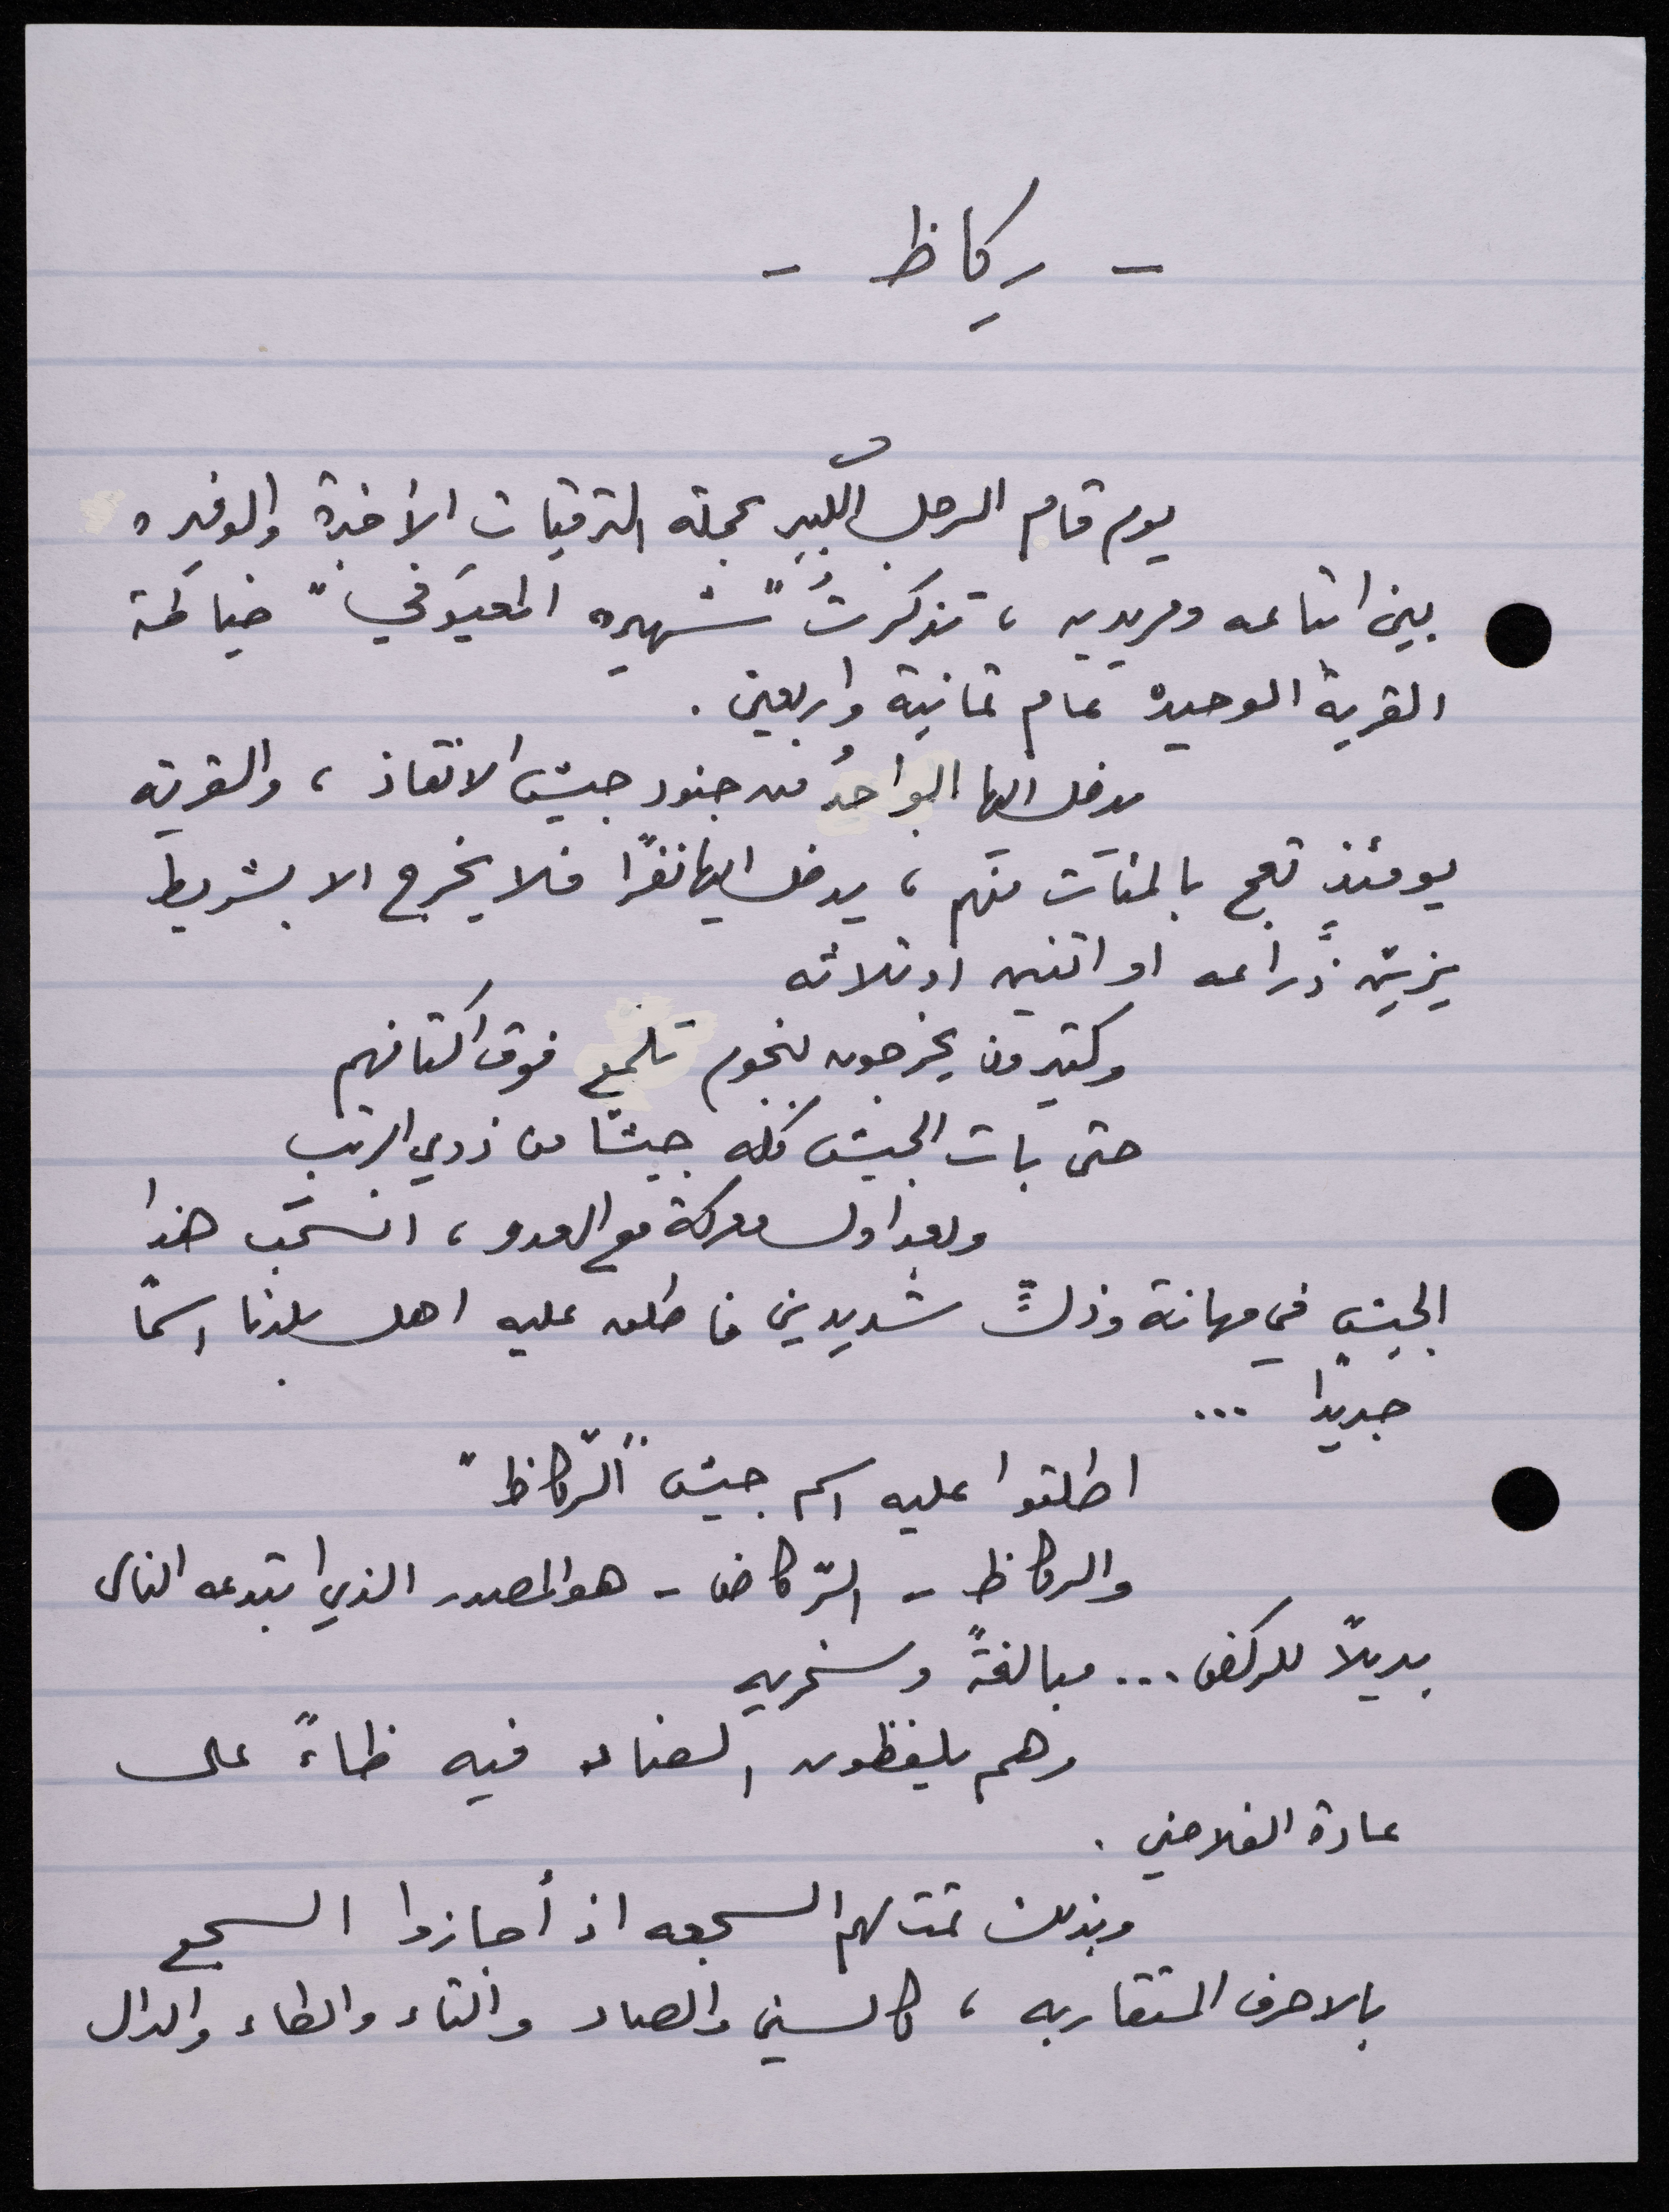 - رِكاظ -
يوم قام الرجل الكبير بحملة الترقيات الأخيرة والوفيره
بين اتباعه ومريديه ، تذكرتُ "شهيره المعيوَفي" خياطة
القرية الوحيده عام ثمانية واربعين .
يدخل اليها الواحدُ من جنود جيش الانقاذ ، والقريه
يومئذٍ تعج بالمئات منهم ، يدخل اليها نفرًا فلا يخرج الا بشريط
يزيّن ذراعه او اثنين او ثلاثه
وكثيرون يخرجون بنجوم تلمع فوق اكتافهم
حتى بات الجيش كله جيشًا من ذوي الرتب
وبعد اول معركة مع العدو ، انسحَب هذا
الجيش في مهانة وذلٍّ شديدين فاطلق عليه اهل بلدنا اسمًا
جديدًا ...
اطلقوا عليه اسم جيش "الرّكاظ"
والركاظ - الرّكاض - هو المصدر الذي ابتدعه الناس
بديلاً للركض ... مبالغةً وسخريه
وهم يلفظون الضاد فيه ظاءً على
عادة الفلاحين .
وبذلك تمت لهم السجعه اذ أجازوا السجع
بالاحرف المتقاربه ، كالسين والصاد والتاء والطاء والدال